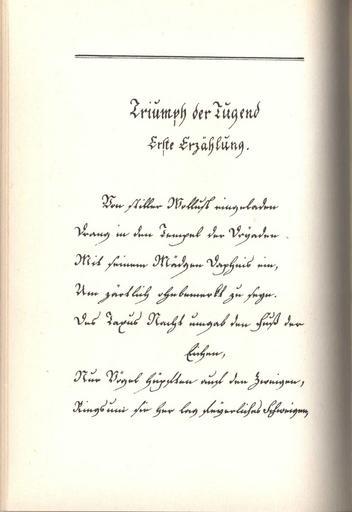 Triumph der Tugend
Erste Erzählung.
Von stiller Wollust eingeladen
Drang in den Tempel der Dryaden
Mit seinem Mädgen Daphnis ein,
Um zärtlich ohnbemerkt zu seyn.
Des Taxus Nacht umgab den Fuß der
Eichen,
Nur Vögel hüpften auf den Zweigen,
Rings um sie her lag feyerliches Schweigen